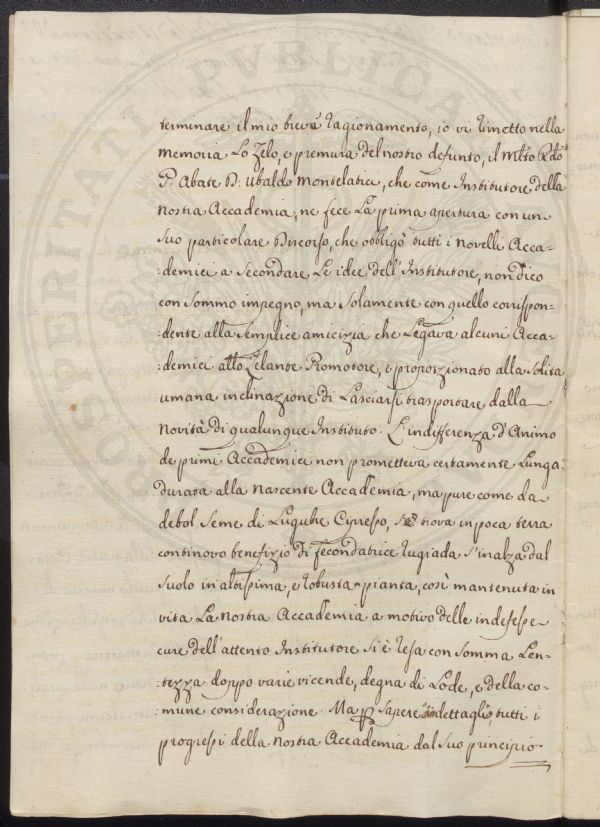 terminare il mio breve ragionamento, io vi rimetto nella
memoria Lo Zelo, e premura del nostro defunto, il Mlto Rdo
P. Abate D: Ubaldo Montelatici, che come Institutore della
nostra Accademia, ne fece La prima apertura con un
suo particolare Discorso, che obbligò tutti i novelli Acca=
:demici a secondare Le idee dell'Institutore, non dico
con sommo impegno, ma solamente con quello corrispon=
:dente alla semplice amicizia che Legava alcuni Acca=
:demici allo Zelante Promotore, e proporzionato alla solita
umana inclinazione di Lasciarsi trasportare dalla
novità di qualunque Instituto. L'indifferenza d'Animo
de primi Accademici non prometteva certamente Lunga
durata alla nascente Accademia, ma pure come da
debol seme di Lugubre Cipresso, se trova in poca terra
continovo benefizio di fecondatrice rugiada s'inalza dal
suolo in altissima, e robusta pianta, così mantenuta in
vita La nostra Accademia a motivo delle indefesse
cure dell'attento Institutore si è resa con somma Len=
:tezza doppo varie vicende, degna di Lode, e della co=
:mune considerazione. Ma p sapere in dettaglio, tutti i
progressi della nostra Accademia dal suo principio
PROSPERITATI PVBLICAE